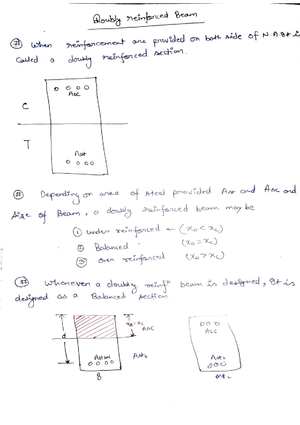 Doubly reinforced Beam
# When reinforcement are provided on both side of N A It is
called a doubly reinforced section.
Asc
C
T
Ast
# Depending on area of steel provided Ast and Asc and
size of Beam, a doubly reinforced beam may be
① under reinforced ← (xa < xc)
② Balanced (xa = xc)
③ over reinforced (xa > xc)
# Whenever a doubly reinfⁿ beam is designed, It is
designed as a Balanced section
xa = xc
d
Asc
Asc
Ast₂
Ast₂
B